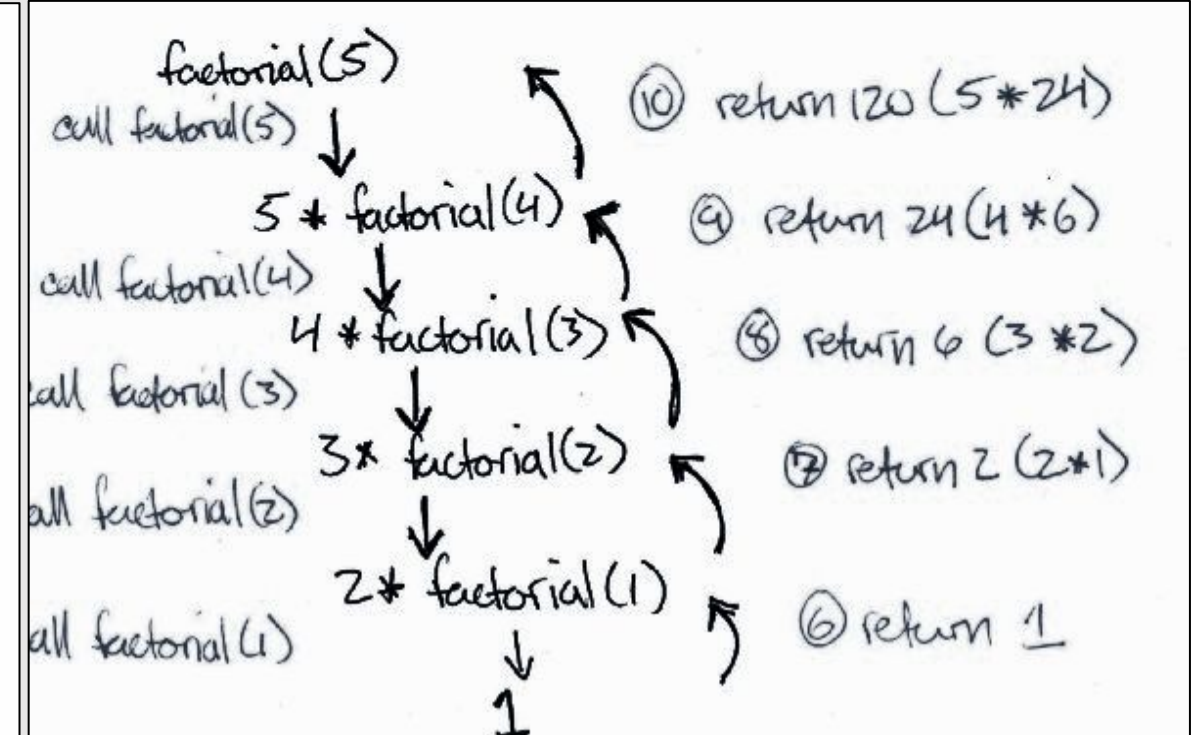 factorial(5)
⑩ return 120 (5*24)
call factorial(5)
5 * factorial(4)
⑨ return 24 (4*6)
call factorial(4)
4 * factorial(3)
⑧ return 6 (3*2)
call factorial (3)
3* factorial(2)
⑦ return 2 (2*1)
all factorial(2)
2* factorial(1)
⑥ return 1
all factorial(1)
1